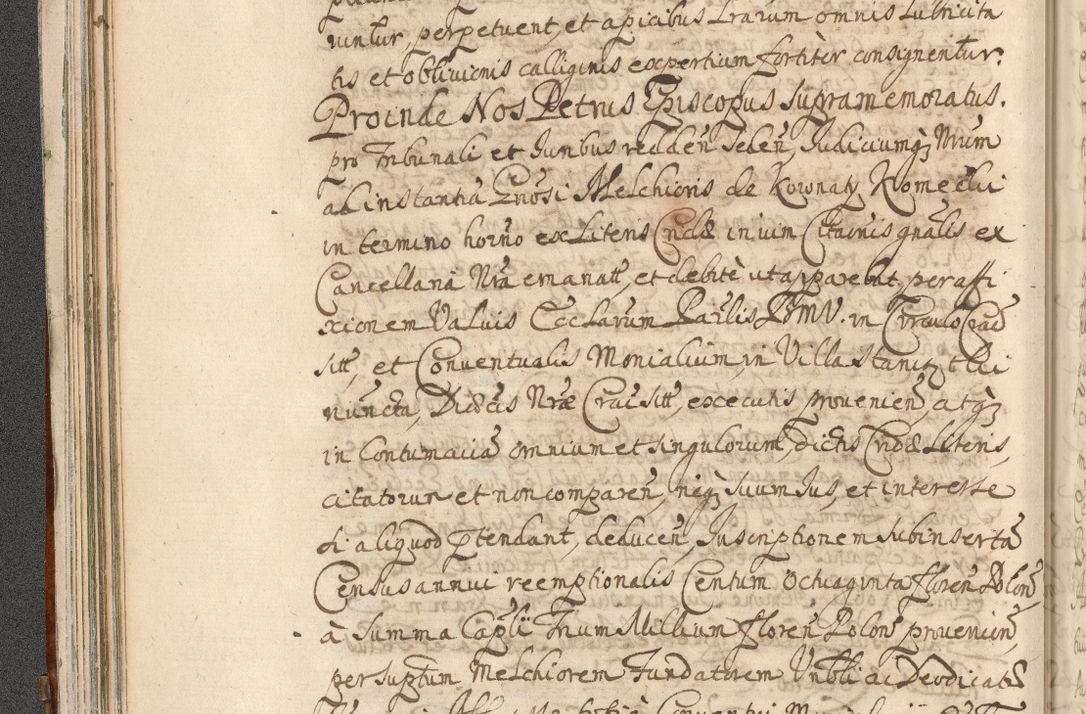 iuntur, perpetuent, et apicibus Lrarum omnis Lubricita
tis et oblivionis calliginis expertium fortiter consignentur.
Proinde Nos Petrus Episcopus supramemoratus.
pro Tribunali et Iuribus redden̄ seden̄, Iudiciumq3 Nrum
ad instantiā Gnosi Melchioris de Koronaty Krome
in termino horno ex Literis Cridae in vim Citaōnis gnālis ex
Cancellaria Nrā emanatt, et debitè ut apparebat, per affi
xionem Valvis Ecclarum Parlis BMV. in Circulo Crac
sitt, et Conventualis Monialium, in Villa Staniąt
nuncta, Diaecis Nrae Crac sitt, executis provenien̄, atq3
in Contumaciā omnium et singulorum, dictis Cridae Literis,
citatorum et non comparen̄, neq3 suum Ius, et interesse
si aliquod ptendant, deducen̄, Inscriptionem subinsertā
Census annui reemptionalis Centum Octuaginta floren̄ Polon̄
à Summa Capli Trium Millium floren̄ Polon̄ provenien̄
per suptum Melchiorem Fundatorem Urbli ac Deodicatae